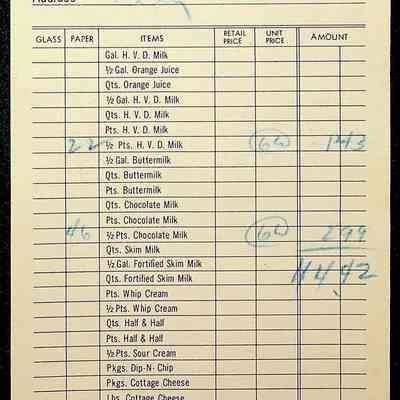 Address
GLASS PAPER ITEMS RETAIL PRICE UNIT PRICE AMOUNT
Gal. H. V. D. Milk
½ Gal. Orange Juice
Qts. Orange Juice
½ Gal. H. V. D. Milk
Qts. H. V. D. Milk
Pts. H. V. D. Milk
22 ½ Pts. H. V. D. Milk 6½ 1 43
½ Gal. Buttermilk
Qts. Buttermilk
Pts. Buttermilk
Qts. Chocolate Milk
Pts. Chocolate Milk
46 ½ Pts. Chocolate Milk 6½ 2 99
Qts. Skim Milk
½ Gal. Fortified Skim Milk 4.42
Qts. Fortified Skim Milk
Pts. Whip Cream
½ Pts. Whip Cream
Qts. Half & Half
Pts. Half & Half
½ Pts. Sour Cream
Pkgs. Dip-N-Chip
Pkgs. Cottage Cheese
Lbs. Cottage Cheese